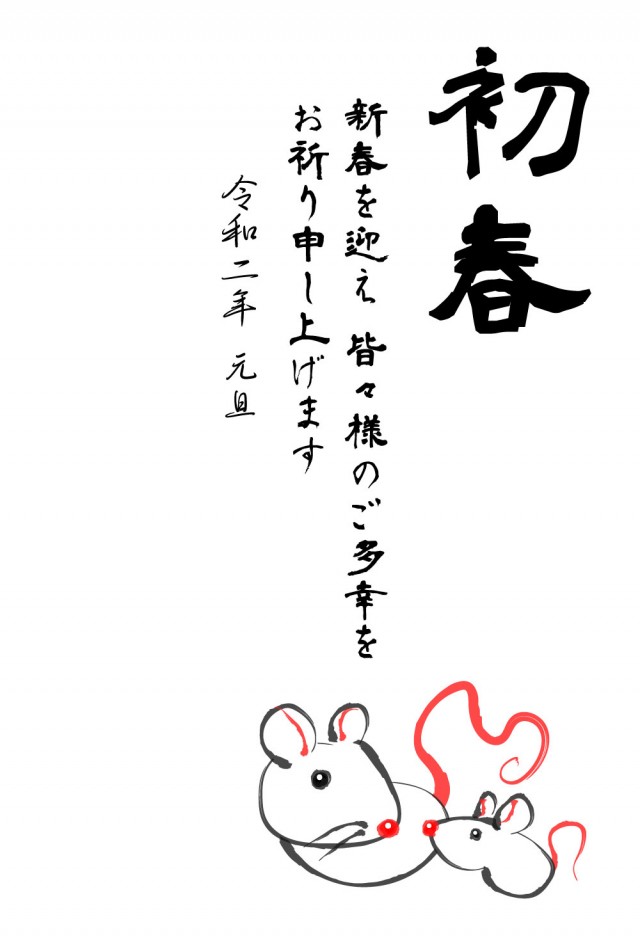 初春
新春を迎え 皆々様のご多幸を
お祈り申し上げます
令和二年 元旦